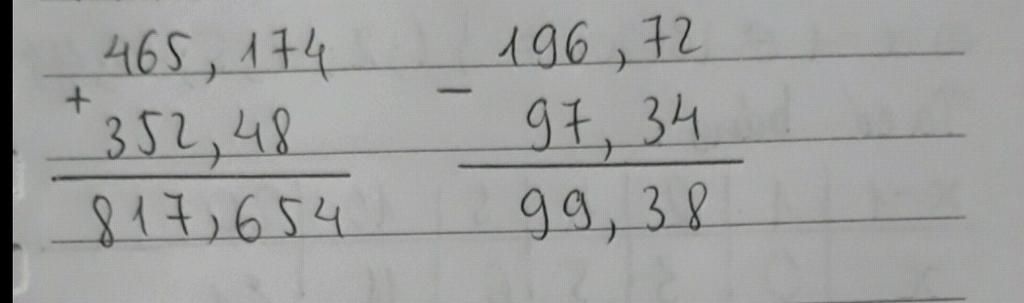 465,174 196,72
+ -
352,48 97,34
817,654 99,38